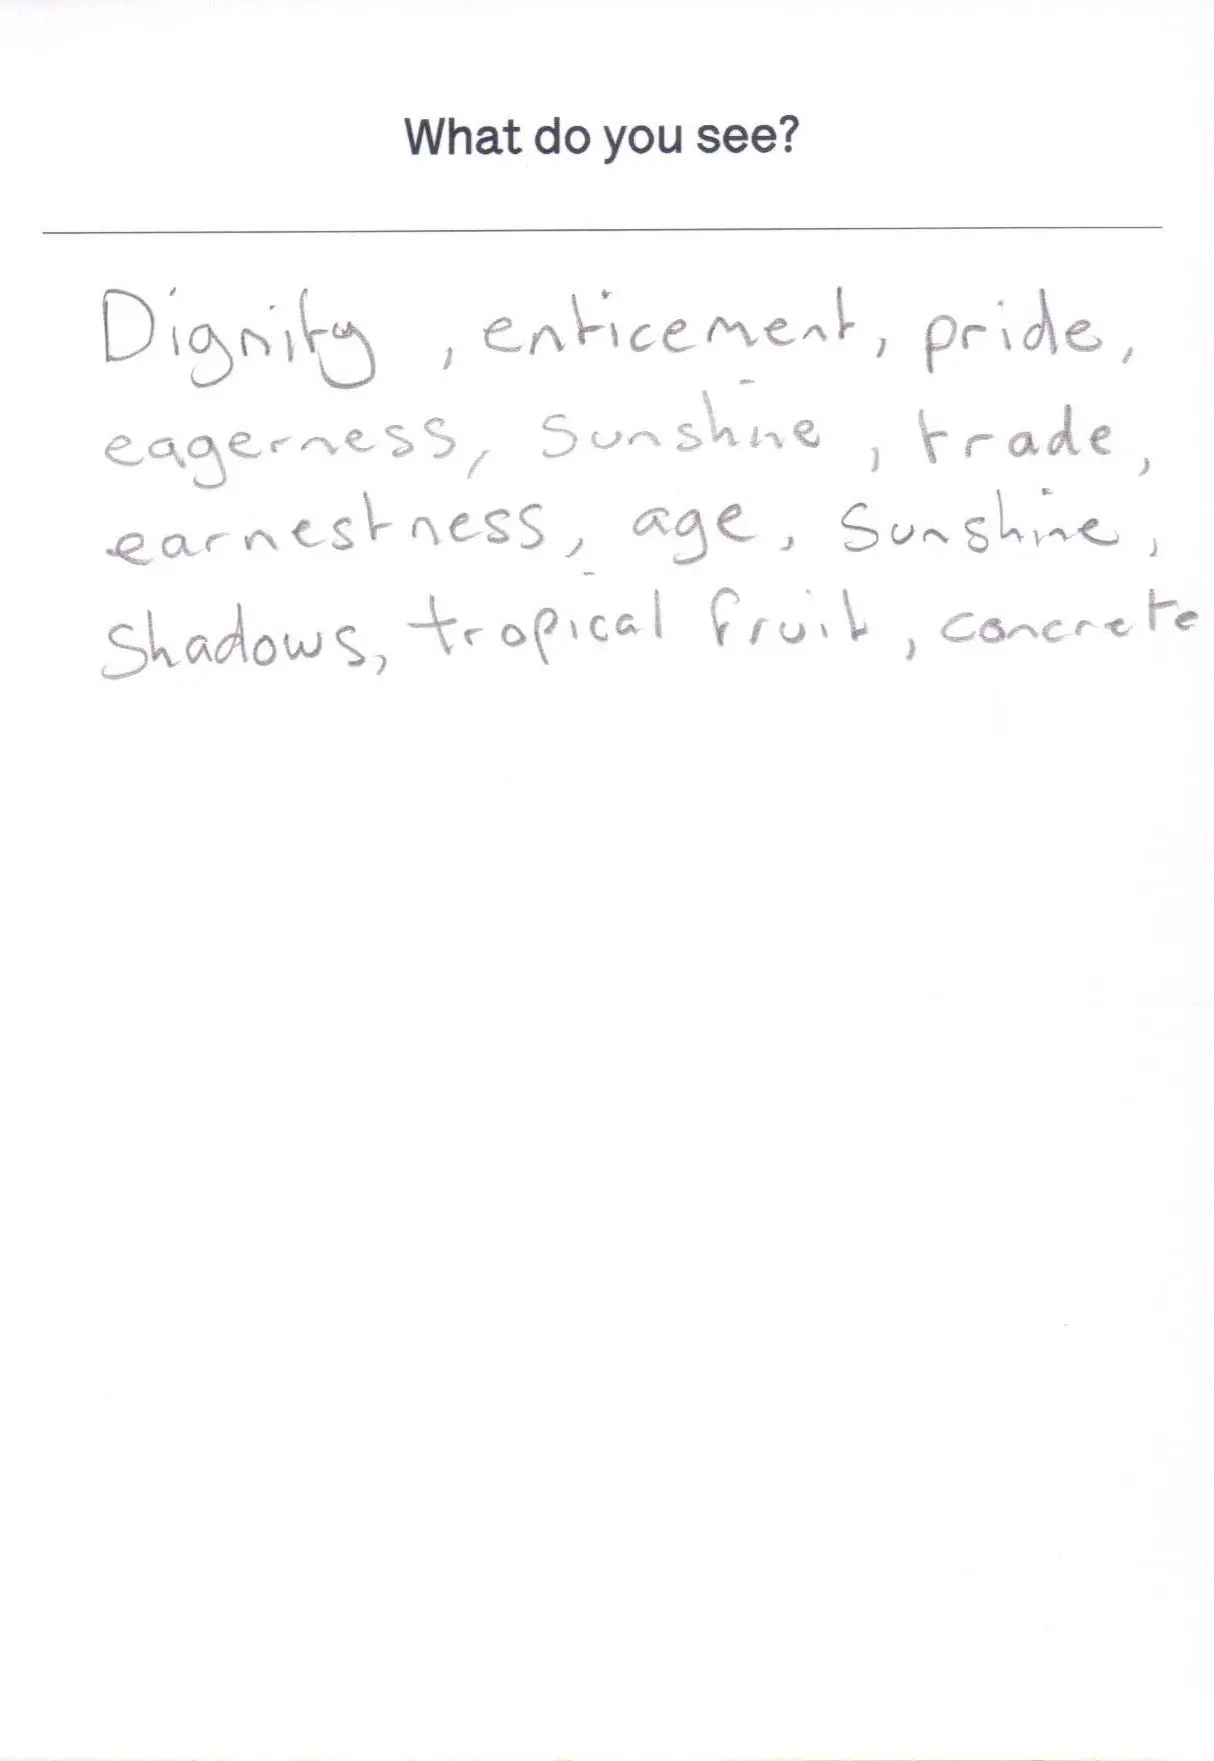 What do you see?
Dignity, enticement, pride,
eagerness, sunshine, trade,
earnestness, age, sunshine,
shadows, tropical fruit, concrete